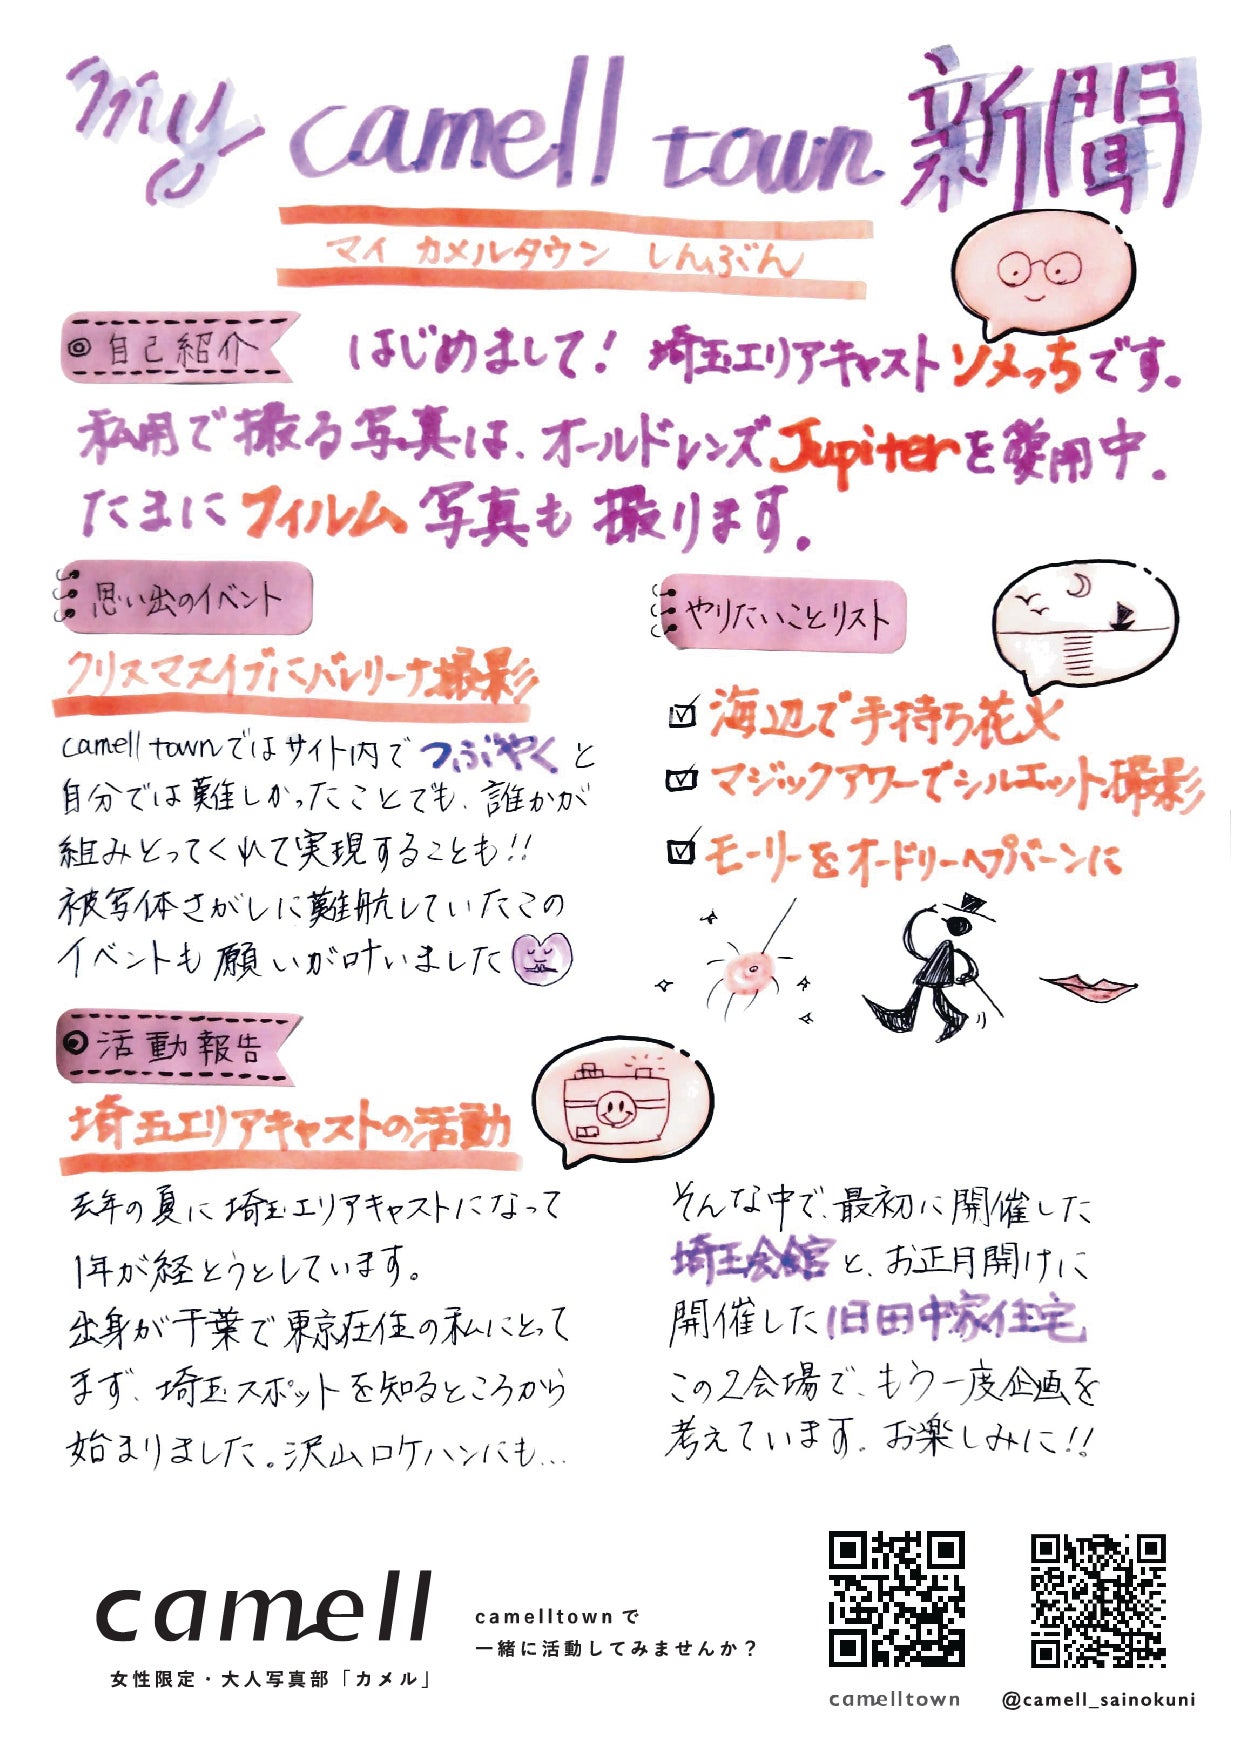 my camell town 新聞
マイ カメルタウン しんぶん
◎自己紹介
はじめまして! 埼玉エリアキャストソメっちです。
私用で撮る写真は、オールドレンズJupiterを愛用中。
たまにフィルム写真も撮ります。
思い出のイベント
クリスマスイブにバレリーナ撮影
camell townではサイト内でつぶやくと
自分では難しかったことでも、誰かが
組みとってくれて実現することも!!
被写体さがしに難航していたこの
イベントも願いが叶いました
やりたいことリスト
海辺で手持ち花火
マジックアワーでシルエット撮影
モーリーをオードリーヘプバーンに
◎活動報告
埼玉エリアキャストの活動
去年の夏に埼玉エリアキャストになって
1年が経とうとしています。
出身が千葉で東京在住の私にとって
まず、埼玉スポットを知るところから
始まりました。沢山ロケハンにも...
そんな中で、最初に開催した
埼玉会館と、お正月開けに
開催した旧田中家住宅
この2会場で、もう一度企画を
考えています。お楽しみに!!
camell
女性限定・大人写真部「カメル」
camelltownで
一緒に活動してみませんか?
camelltown
@camell_sainokuni